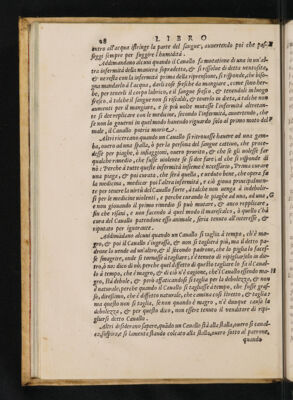 28 LIBRO
entro all'acqua stringe la parte del sangue, auuertendo poi che pas-
seggi sempre per fuggire l'humidità.
Addimandano alcuni quando il Cauallo fa mutatione di una in un'al-
tra infermità della maniera sopradetta, & si risolue di detta uentosità,
& ne resta con la infermità prima della riprensione, si risponde, che biso-
gna mandarlo à l'acqua, darli cose fresche da mangiare, come sono her-
be, per tenerli il corpo lubrico, e il sangue fresco, & tenendoli in luogo
fresco, e tolendoli il sangue non si riscaldi, & tenerlo in dieta, tal che non
aumenti il detto male, & se più uolte mutasse l'infermità altretan-
te si dee replicare con le medicine, secondo l'infermità, auuertendo, che
se non lo gouerni in quel modo hauendo riguardo al suo primo moto del
male, il Cauallo patiria morire.
Altri ricercano quando un Cauallo si ritrouasse hauere ad una gam-
ba, ouero ad una spalla, è per la persona del sangue cattiuo, che proce-
desse per piaghe, ò infiaggioni, ouero prurito, & che se gli uolesse far
qualche remedio, che fusse uiolente se si dee fare; al che si risponde di
nò; Perche à tutte queste infermità insieme è necessario, Prima curare
una piaga, & poi curata, che sarà quella, e ueduto bene, che opera fa
la medicina, medicar poi l'altra infermità, e ciò giouа principalmen-
te per tenere la uirtù del Cauallo forte, & talche non uenga à indebolir-
si per le medicine uiolenti, e perche curando le piaghe ad una, ad una,
e non giouando il primo remedio si può mutare, & anco replicare,
fin che risani, e non facendo à quel modo si mortifica, & dall'altra
cura del Cauallo patendone essi animali, seria tenuto all'interesse, &
riputato per ignorante.
Addimãdano alcuni quando un Cauallo si taglia à tempo, ch'è ma-
gro, & poi il Cauallo s'ingrassa, & non si tagliera più, ma il padro-
dicono lo uende ad un'altro, & il secondo padrone, che lo piglia lo faces-
se smagrare, onde si tornasse à tagliare, s'è tenuto di ripigliarselo in die-
tro, ò nò: dico di nò, perche quel diffetto di questo tagliare lo fa il Caual-
lo à tempo, che è magro, & di ciò n'è cagione, che l'Cauallo essendo ma-
gro, sta debole, & però affaticandosi si taglia per la debolezza, & non
è naturale, perche quando il Cauallo si tagliasse à tempo, che fusse gras-
so, diressimo, che è diffetto naturale, che camina cosi stretto, & tagliati,
ma questo non si taglia, senon quando è magro, n'è dunque causa la
debolezza, & per questo dico, non essere tenuto il uenditore di ripi-
gliarsi detto Cauallo.
Altri desiderano sapere, quãdo un Cauallo stà alla stalla, ouero si caual-
ca, sospira, e si lamenta stando colcato alla stalla, ouero sotto al patrone,
quando